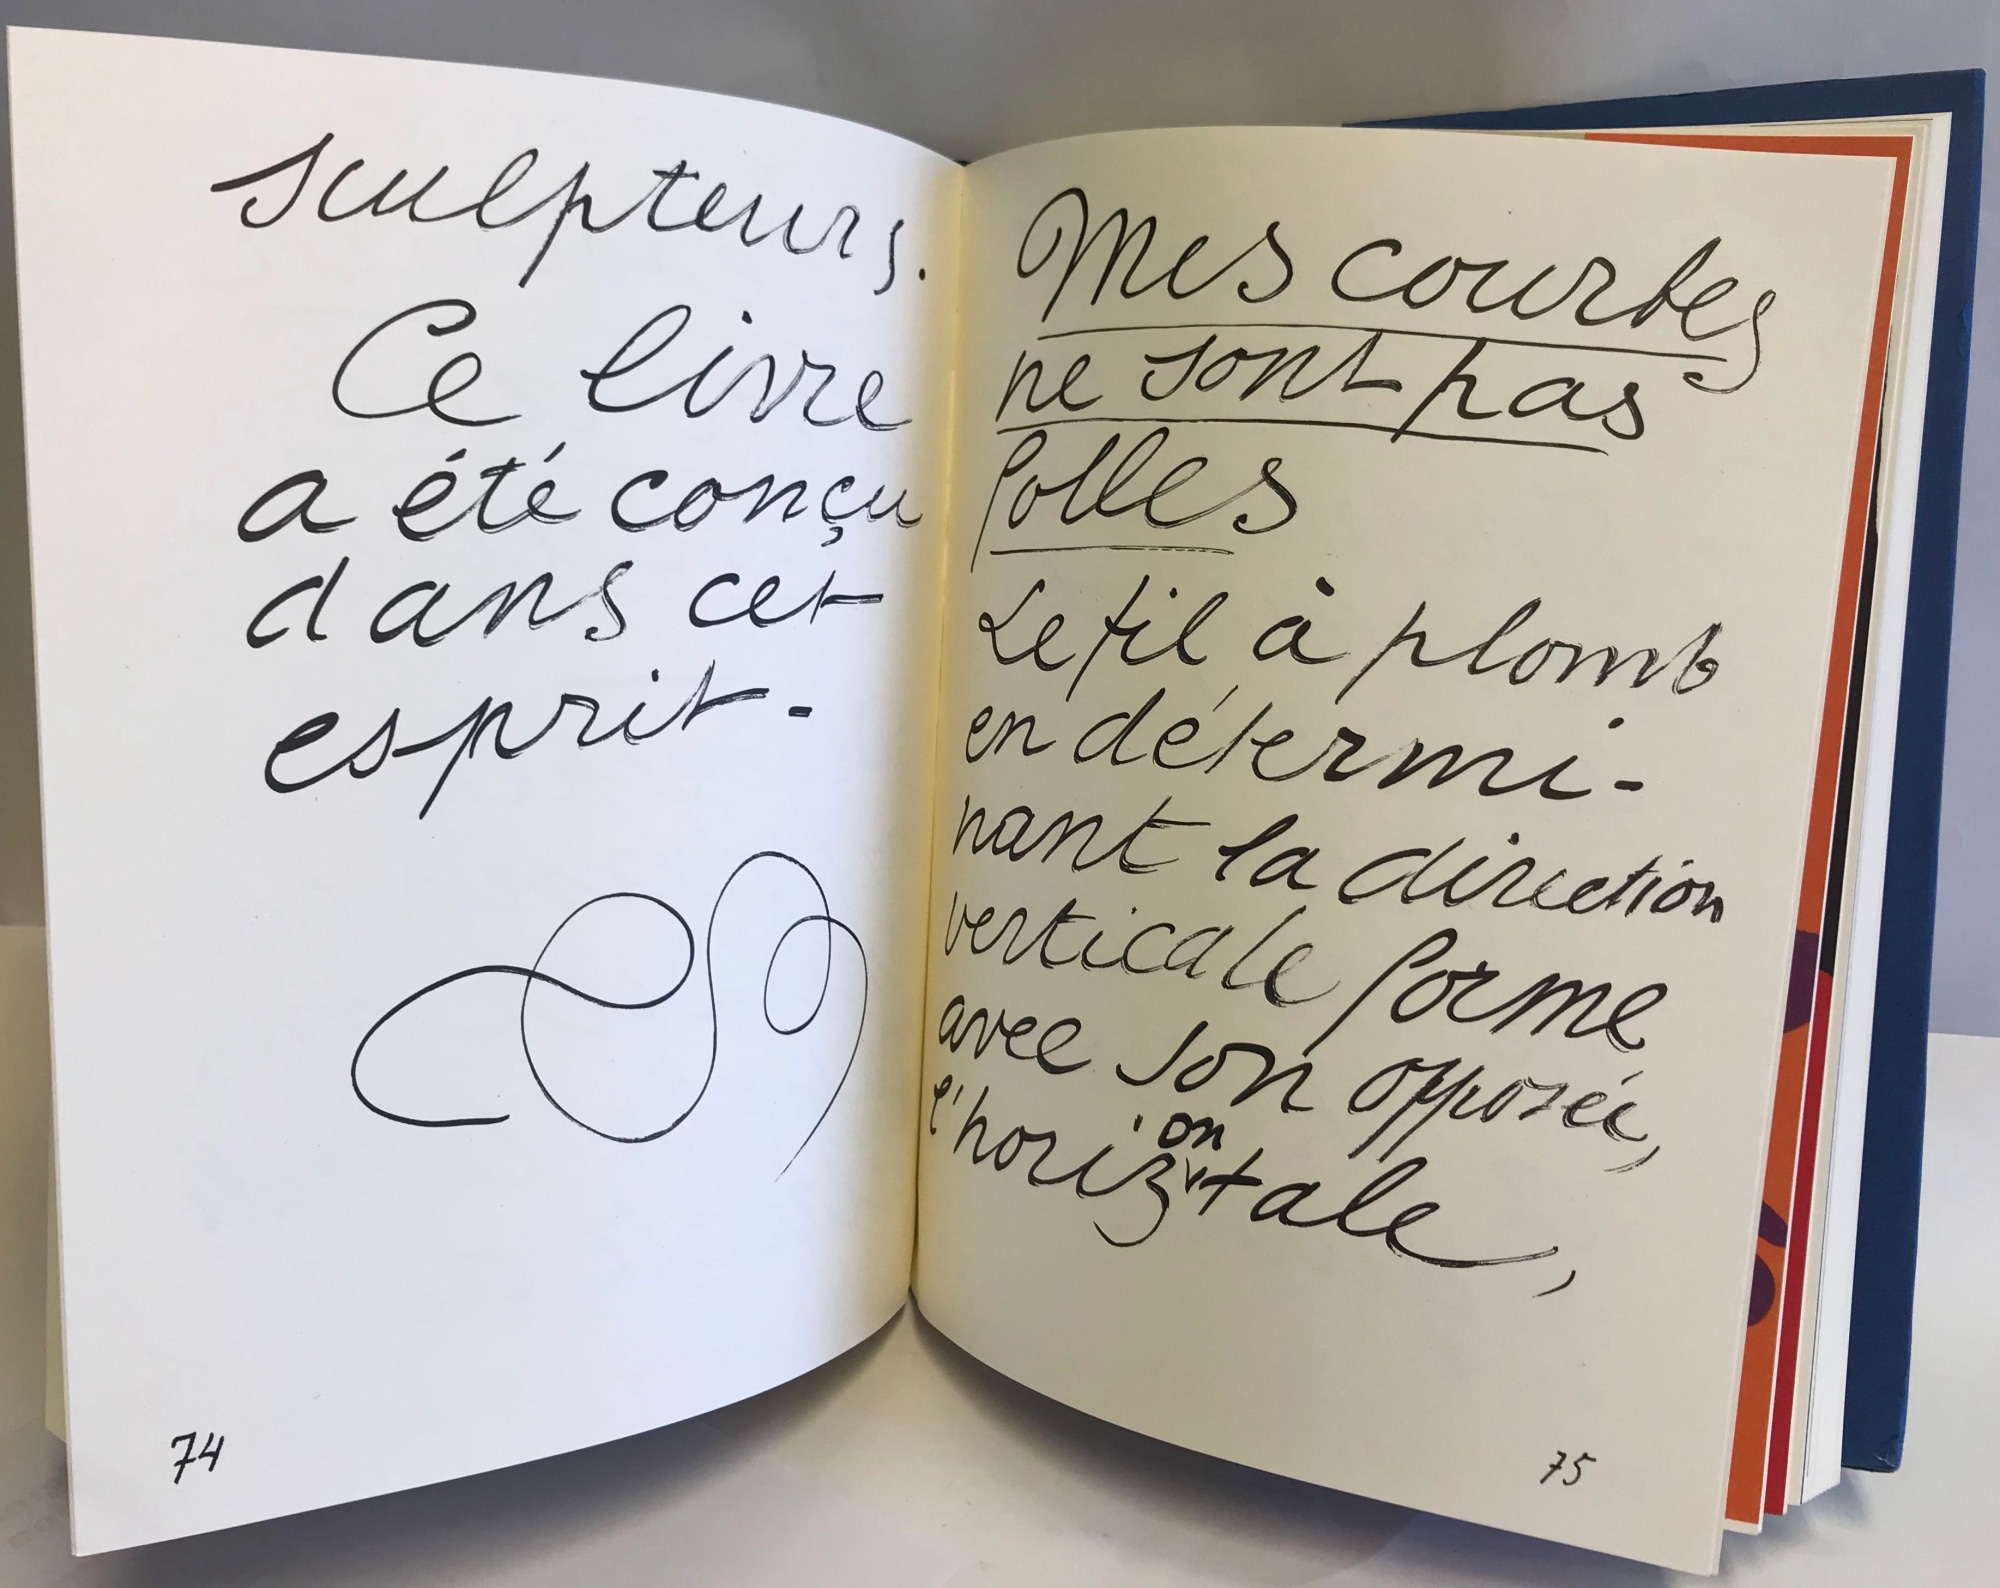 sculpteurs.
Ce livre
a été conçu
dans cet
esprit.
74
Mes courbes
ne sont pas
folles
Le fil à plomb
en détermi-
nant la direction
verticale forme
avec son opposée,
l'horizontale,
75